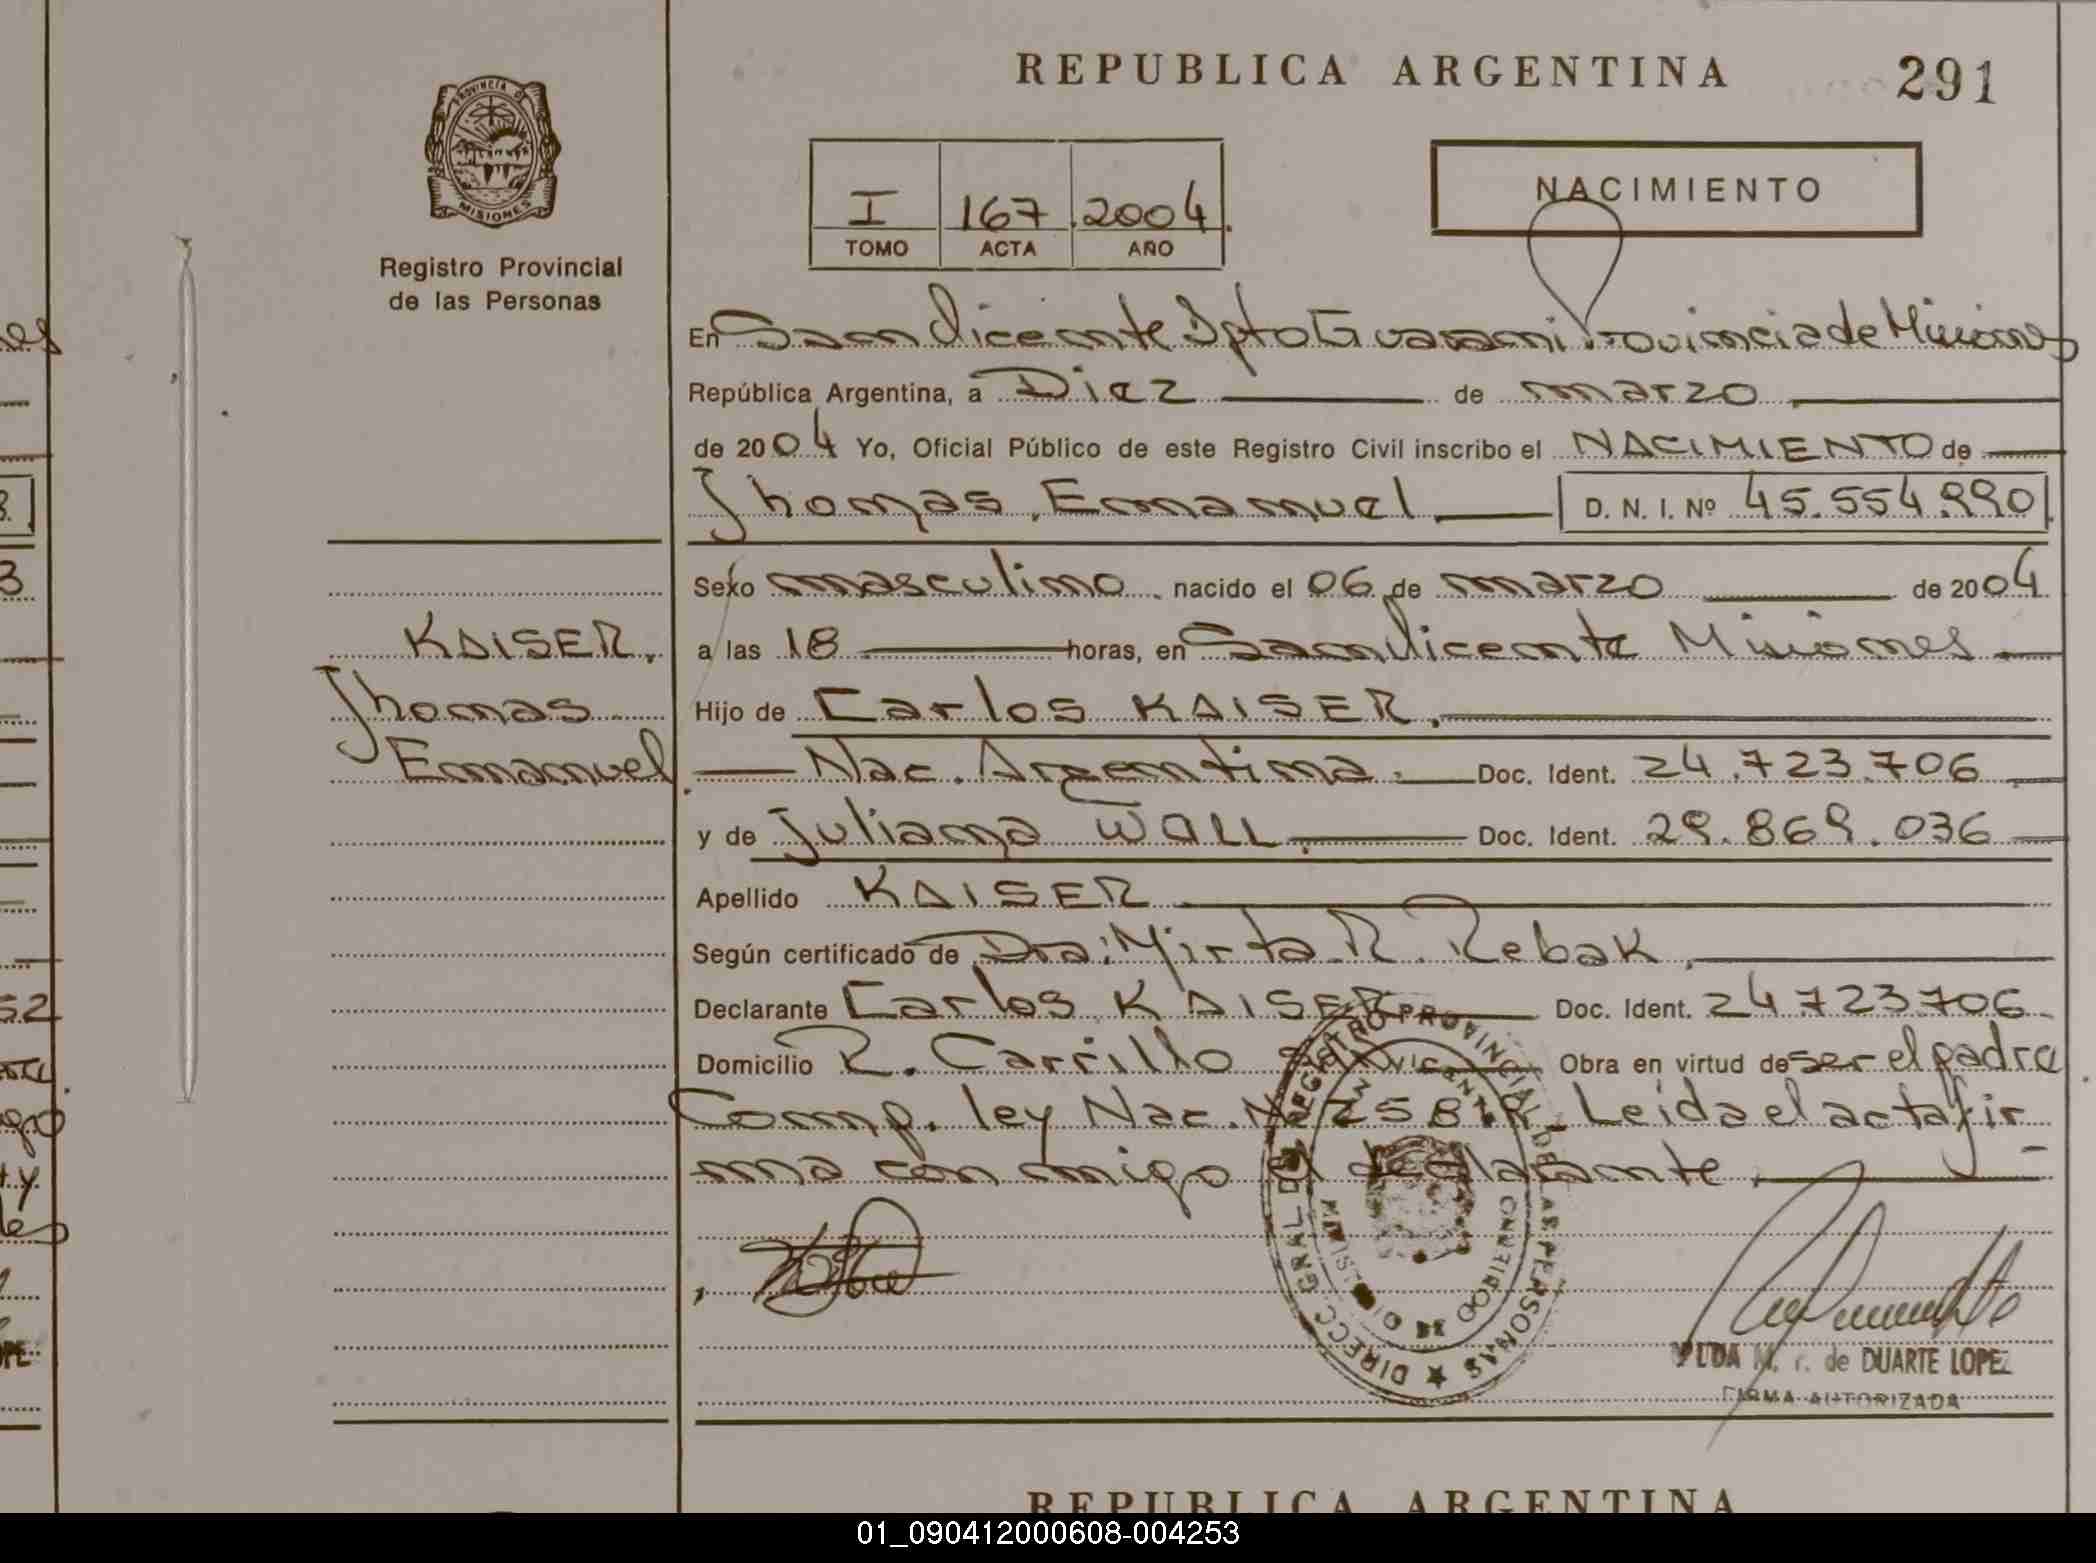 REPUBLICA ARGENTINA
291
PROVINCIA DE
MISIONES
Registro Provincial
de las Personas
I 167 2004
TOMO ACTA AÑO
NACIMIENTO
En San Vicente Dpto Guarani Provincia de Misiones
República Argentina, a Diez de marzo
de 2004 Yo, Oficial Público de este Registro Civil inscribo el NACIMIENTO de
Jhomas Emanuel D. N. I. Nº 45.554.990
Sexo masculino nacido el 06 de marzo de 2004
KAISER,
Jhomas
Emanuel
a las 18 horas, en San Vicente Misiones
Hijo de Carlos KAISER.
Nac. Argentina. Doc. Ident. 24.723.706
y de Juliana WALL. Doc. Ident. 29.869.036
Apellido KAISER
Según certificado de Dra: Mirta R. Rebak.
Declarante Carlos KAISER Doc. Ident. 24.723.706
Domicilio R. Carrillo San Vicente Obra en virtud de ser el padre
Comp. ley Nac. Nº Leída el acta fir
ma con migo el declarante.
DIRECC. GRAL DEL REGISTRO PROVINCIAL DE LAS PERSONAS
MINISTERIO DE GOBIERNO
de DUARTE LOPEZ
FIRMA AUTORIZADA
REPUBLICA ARGENTINA
01_090412000608-004253